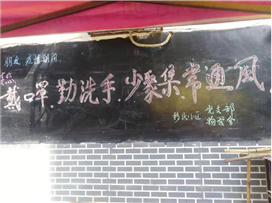 朋友 疫情期间
戴口罩.勤洗手.少聚集常通风
移民小区 党支部